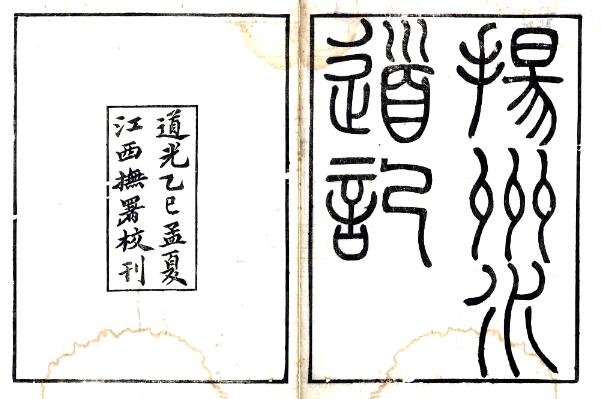 揚州水
道記
道光乙巳孟夏
江西撫署校刊